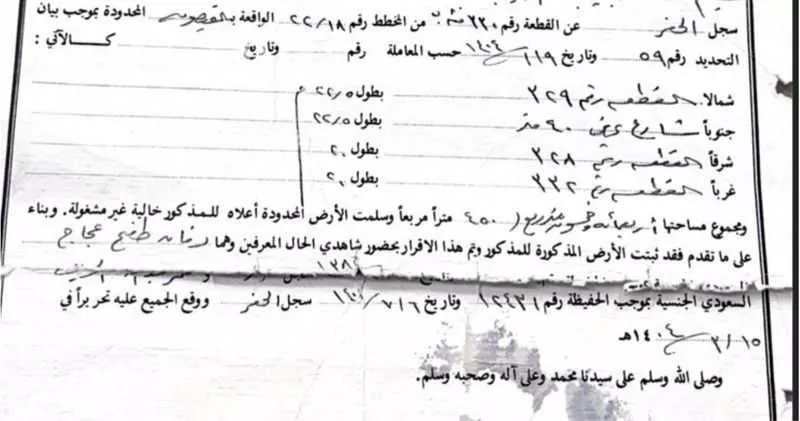 سجل الحفر عن القطعة رقم ٣٣٠ من المخطط رقم ٢٢/١٨ الواقعة المحدودة بموجب بيان
التحديد رقم ٥٩ وتاريخ ١١٩/ ١٤٠٤ حسب المعاملة رقم وتاريخ كالآتي :
شمالا: القطعه رقم ٣٢٩ بطول ٢٢/٥ م
جنوباً شارع عرض ٤٠ متر بطول ٢٢/٥
شرقاً القطعه رقم ٣٢٨ بطول ٢٠
غرباً القطعه رقم ٣٣٢ بطول ٢٠
ومجموع مساحتها أربعمائة وخمسون متر مربع (٤٥٠) متراً مربعاً وسلمت الأرض المحدودة أعلاه للمذكور خالية غير مشغولة. وبناء
على ما تقدم فقد ثبتت الأرض المذكورة للمذكور وتم هذا الاقرار بحضور شاهدي الحال المعرفين وهما عجاج
السعودي الجنسية بموجب الحفيظة رقم ١٢٤٣١ وتاريخ ٧/٦/ ١٤٠ سجل الحفر ووقع الجميع عليه تحريراً في
١٥/ ٣/ ١٤٠٤هـ
وصلى الله وسلم على سيدنا محمد وعلى آله وصحبه وسلم.